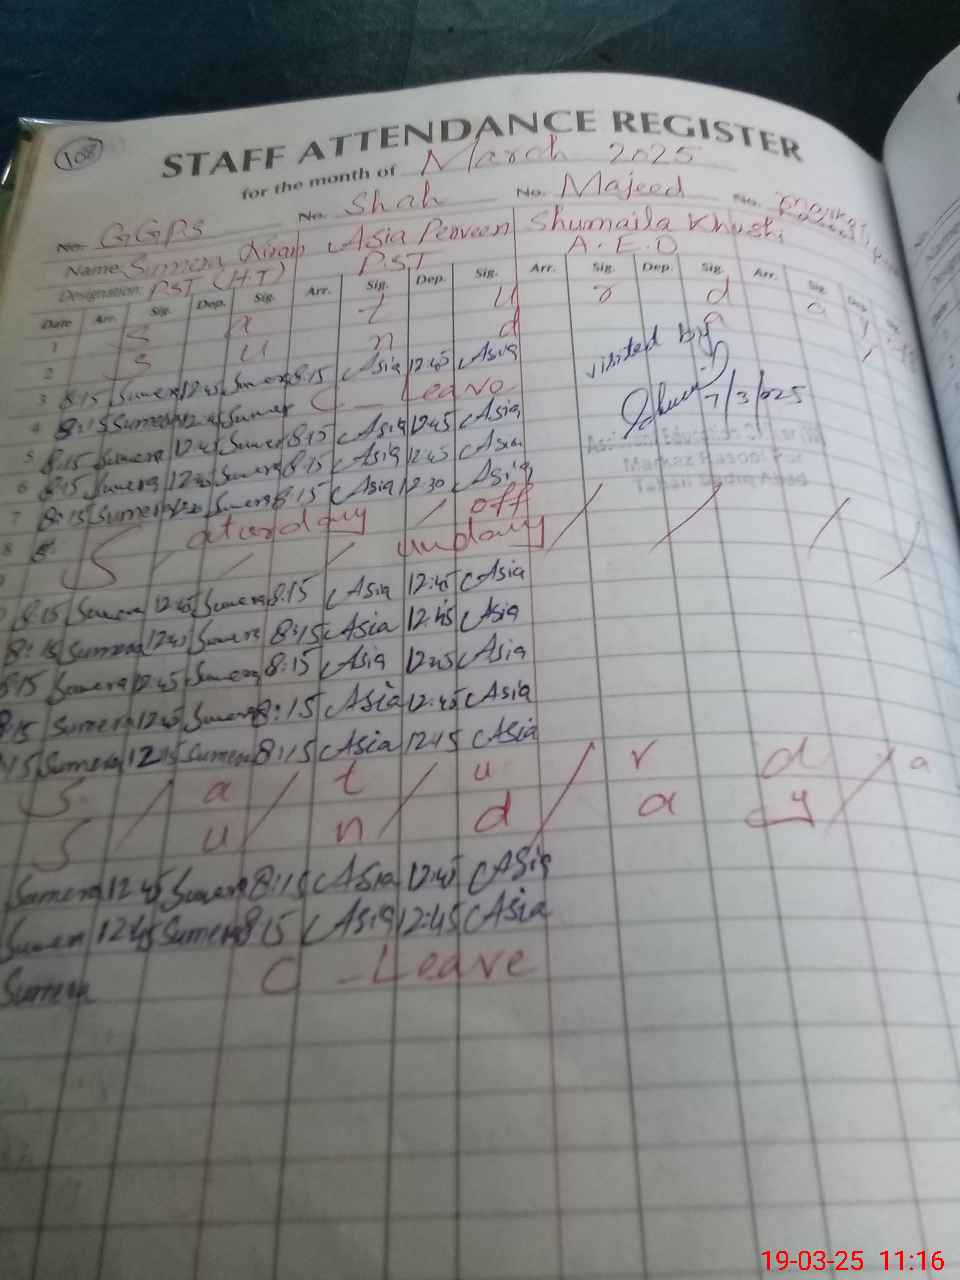 108
STAFF ATTENDANCE REGISTER
for the month of March 2025
No. GGPS No. Shah No. Majeed No.
Name Sumera Asia Perveen Shumaila Khush
Designation: PST (H.T) PST A.E.O
Date Arr. Sig. Dep. Sig. Arr. Sig. Dep. Sig. Arr. Sig. Dep. Sig. Arr. Sig. Dep.
1 S a t u r d a y
2 S u n d a
3 8:15 Sumera 12:45 Sumera 8:15 Asia 12:45 Asia visited by
4 8:15 Sumera 12:45 Sumera C - Leave
7/3/025
5 8:15 Sumera 12:45 Sumera 8:15 Asia 12:45 Asia
Assistant Education Officer (W)
6 8:15 Sumera 12:45 Sumera 8:15 Asia 12:45 Asia
Markaz Rasool Pur
7 8:15 Sumera 12:30 Sumera 8:15 Asia 12:30 Asia
Tehsil Sadiq Abad
8 Saturday off
Sunday
8:15 Sumera 12:45 Sumera 8:15 Asia 12:45 Asia
8:15 Sumera 12:45 Sumera 8:15 Asia 12:45 Asia
8:15 Sumera 12:45 Sumera 8:15 Asia 12:45 Asia
8:15 Sumera 12:45 Sumera 8:15 Asia 12:45 Asia
:15 Sumera 12:15 Sumera 8:15 Asia 12:15 Asia
S a t u r d a
S u n d a y
Sumera 12:45 Sumera 8:15 Asia 12:45 Asia
Sumera 12:45 Sumera 8:15 Asia 12:45 Asia
Sumera C - Leave
19-03-25 11:16